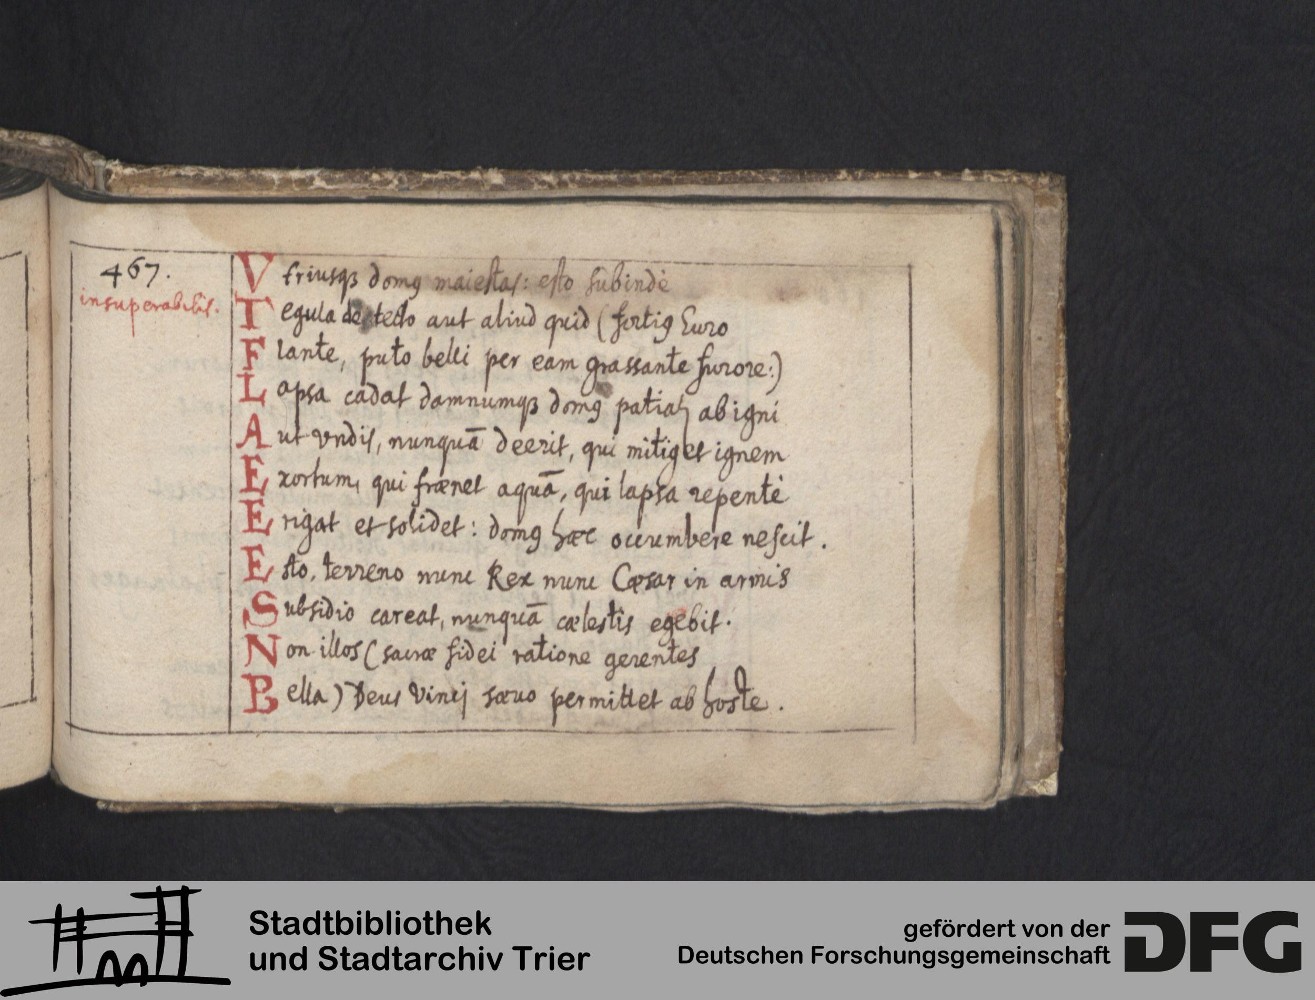 467.
insuperabilis.
Vtriusqꝫ domꝰ maiestas: esto subindè
Tegula de tecto aut aliud quid (fortiꝰ Euro
Flante, puto belli per eam grassante furore:)
Lapsa cadat damnumqꝫ domꝰ patiat᷒ ab igni
Aut vndis, nunquā deerit, qui mitiget ignem
Exortum, qui frænet aquā, qui lapsa repentè
Erigat et solidet: domꝰ hæc occumbere nescit.
Esto, terreno nunc Rex nunc Cæsar in armis
Subsidio careat, nunquā cælestis egebit.
Non illos (sacræ fidei ratione gerentes
Bella) Deus vincj sæuo permittet ab hoste.
Stadtbibliothek
und Stadtarchiv Trier
gefördert von der
Deutschen Forschungsgemeinschaft
DFG